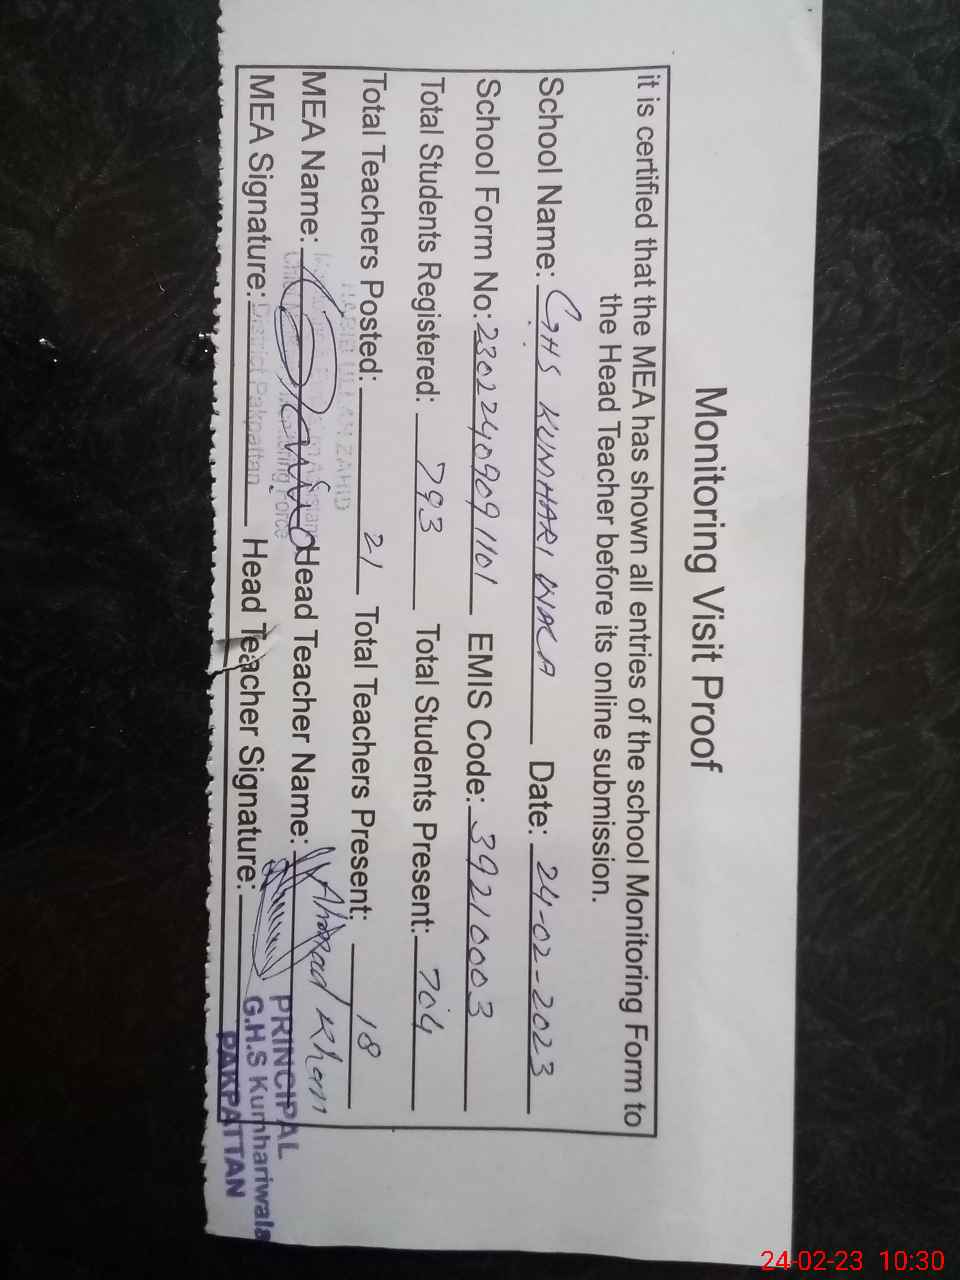 Monitoring Visit Proof
it is certified that the MEA has shown all entries of the school Monitoring Form to
the Head Teacher before its online submission.
School Name: GHS KUMHARI WALA Date: 24-02-2023
School Form No: 23022409091101 EMIS Code: 39210003
Total Students Registered: 793 Total Students Present: 704
Total Teachers Posted: 21 Total Teachers Present: 18
HABIB ULLAH ZAHID
MEA Name: Head Teacher Name: Ahmad Khan
MEA Signature: District Pakpattan Head Teacher Signature:
PRINCIPAL
G.H.S Kumhariwala
PAKPATTAN
24-02-23 10:30